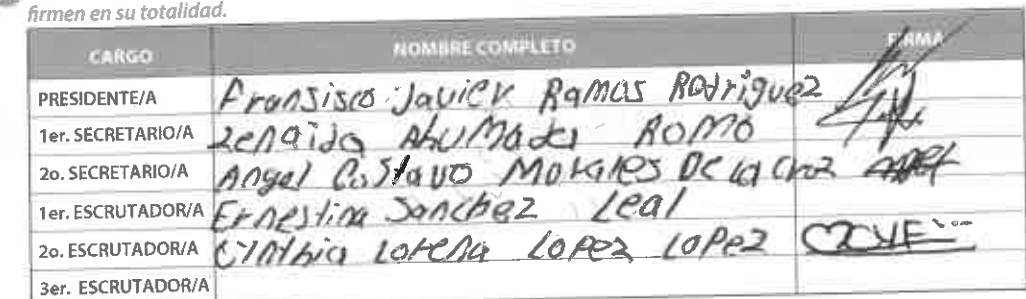 firmen en su totalidad.
CARGO NOMBRE COMPLETO FIRMA
PRESIDENTE/A Fransisco Javier Ramos Rodriguez
1er. SECRETARIO/A Zenaida Ahumada Romo
2o. SECRETARIO/A Angel Gustavo Morales De La Cruz
1er. ESCRUTADOR/A Ernestina Sanchez Leal
2o. ESCRUTADOR/A Cynthia Lorena Lopez Lopez
3er. ESCRUTADOR/A